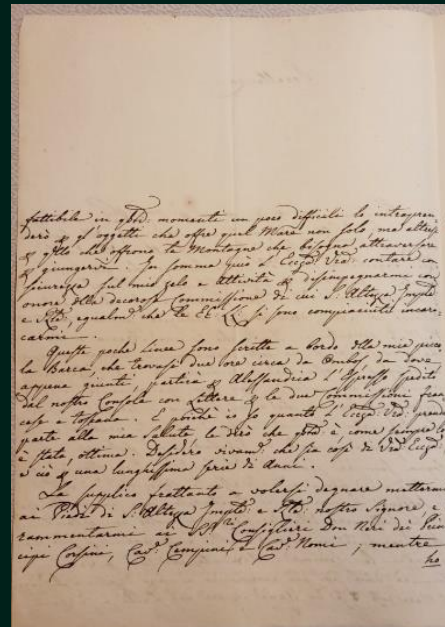 fattibile in qsti momenti un poco difficili lo intrapren
derò & gl'oggetti che offre quel Mare non solo, ma altresì
& qllo che offrono le Montagne che bisogna attraversare
& giungervi. In somma può l'Eccza Vra contare con
sicurezza sul mio zelo e Attività & disimpegnarmi con
onore della decorosa Commissione di cui S. Altezza Imple
e Rle egualmte che le EE. LL. si sono compiaciute incar=
carmi.
Queste poche linee sono scritte a bordo della mia picco
la Barca, che trovasi due ore circa da Ombos, da dove
appena giunti, partirà & Alessandria l'Espresso spedito
dal nostro Console con Lettere & le due Commissioni fran
cese e toscana. E poichè io so quanto l'Eccza Vra prenda
parte alla mia salute, le dirò che qsta è, come sempre lo
è stata, ottima. Desidero vivamte che sia così di Vra Eccza
e ciò & una lunghissima serie di Anni.
La supplico frattanto a volersi degnare mettermi
ai Piedi di S. Altezza Imple e Rle nostro Signore e
rammentarmi ai SSri Consiglieri Don Neri dei Prin
cipi Corsini, Cave Cempini e Cave Nomi, mentre
ho